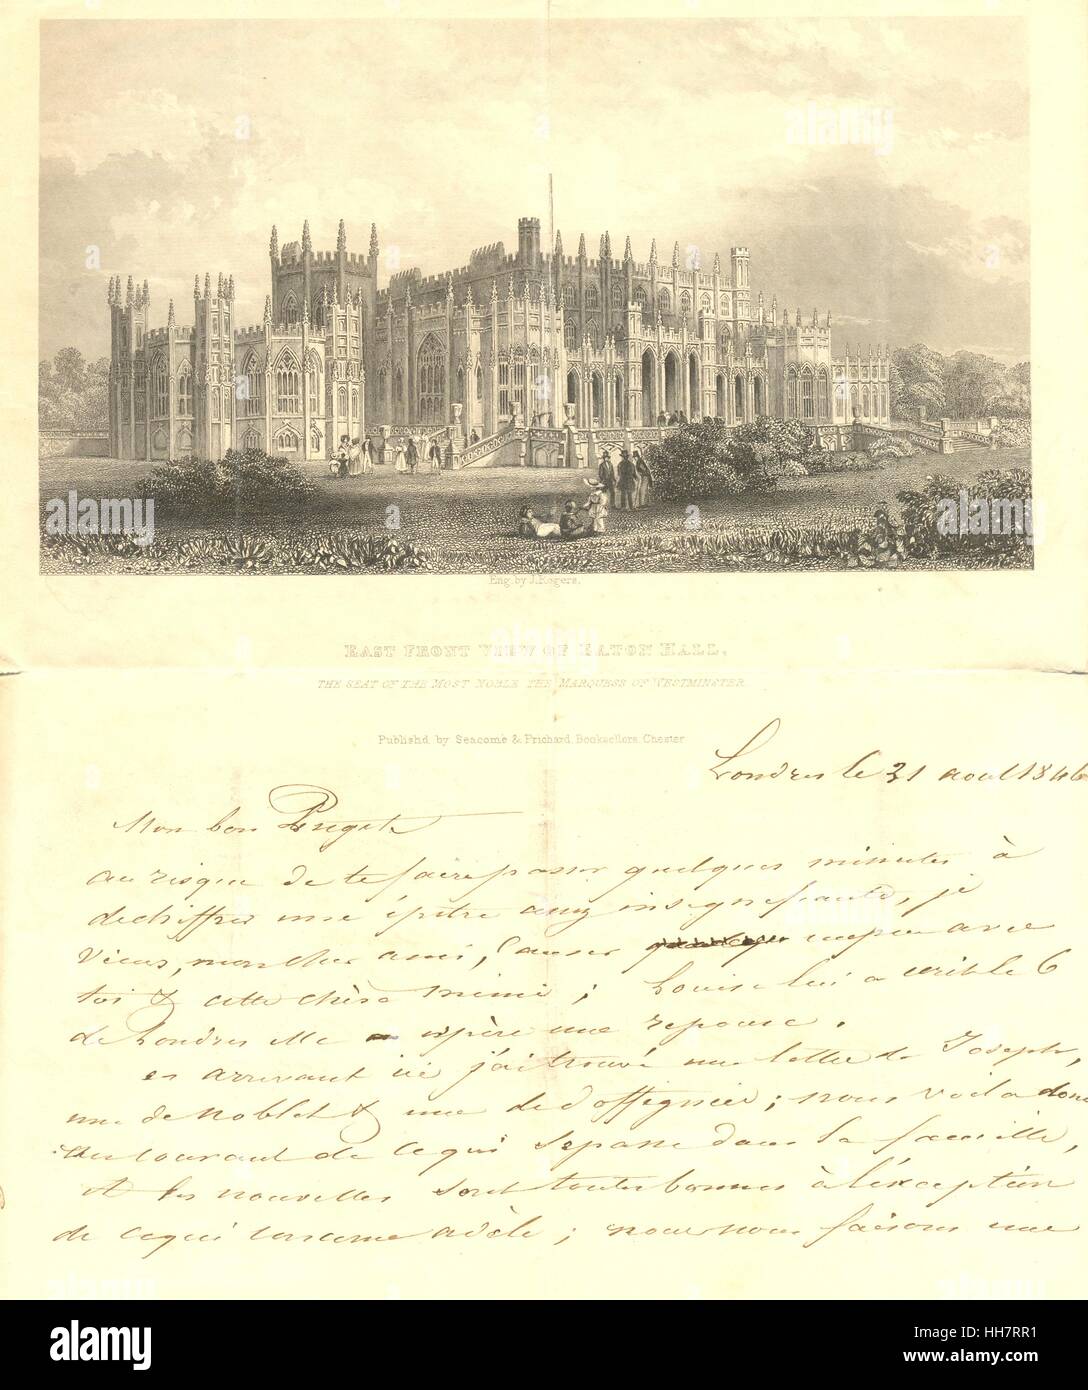 Eng. by J. Rogers.
EAST FRONT VIEW OF EATON HALL,
THE SEAT OF THE MOST NOBLE THE MARQUESS OF WESTMINSTER.
Publishd. by Seacome & Prichard, Booksellers, Chester
Londres le 31 aout 1846
Mon bon
au risque de te faire passer quelques minutes à
dechiffrer une épitre assez insignifiante, je
viens, mon cher ami, causer un peu avec
toi & cette chère mimi ; Louise lui a écrit le 6
de Londres elle espère une reponse.
en arrivant ici j'ai trouvé une lettre de Joseph,
une de Noblet & une de d'offignies ; nous voila donc
au courant de ce qui se passe dans la famille,
& les nouvelles sont toutes bonnes à l'exception
de ce qui concerne adèle ; nous nous faisons une
alamy
alamy
Image ID: HH7RR1
www.alamy.com